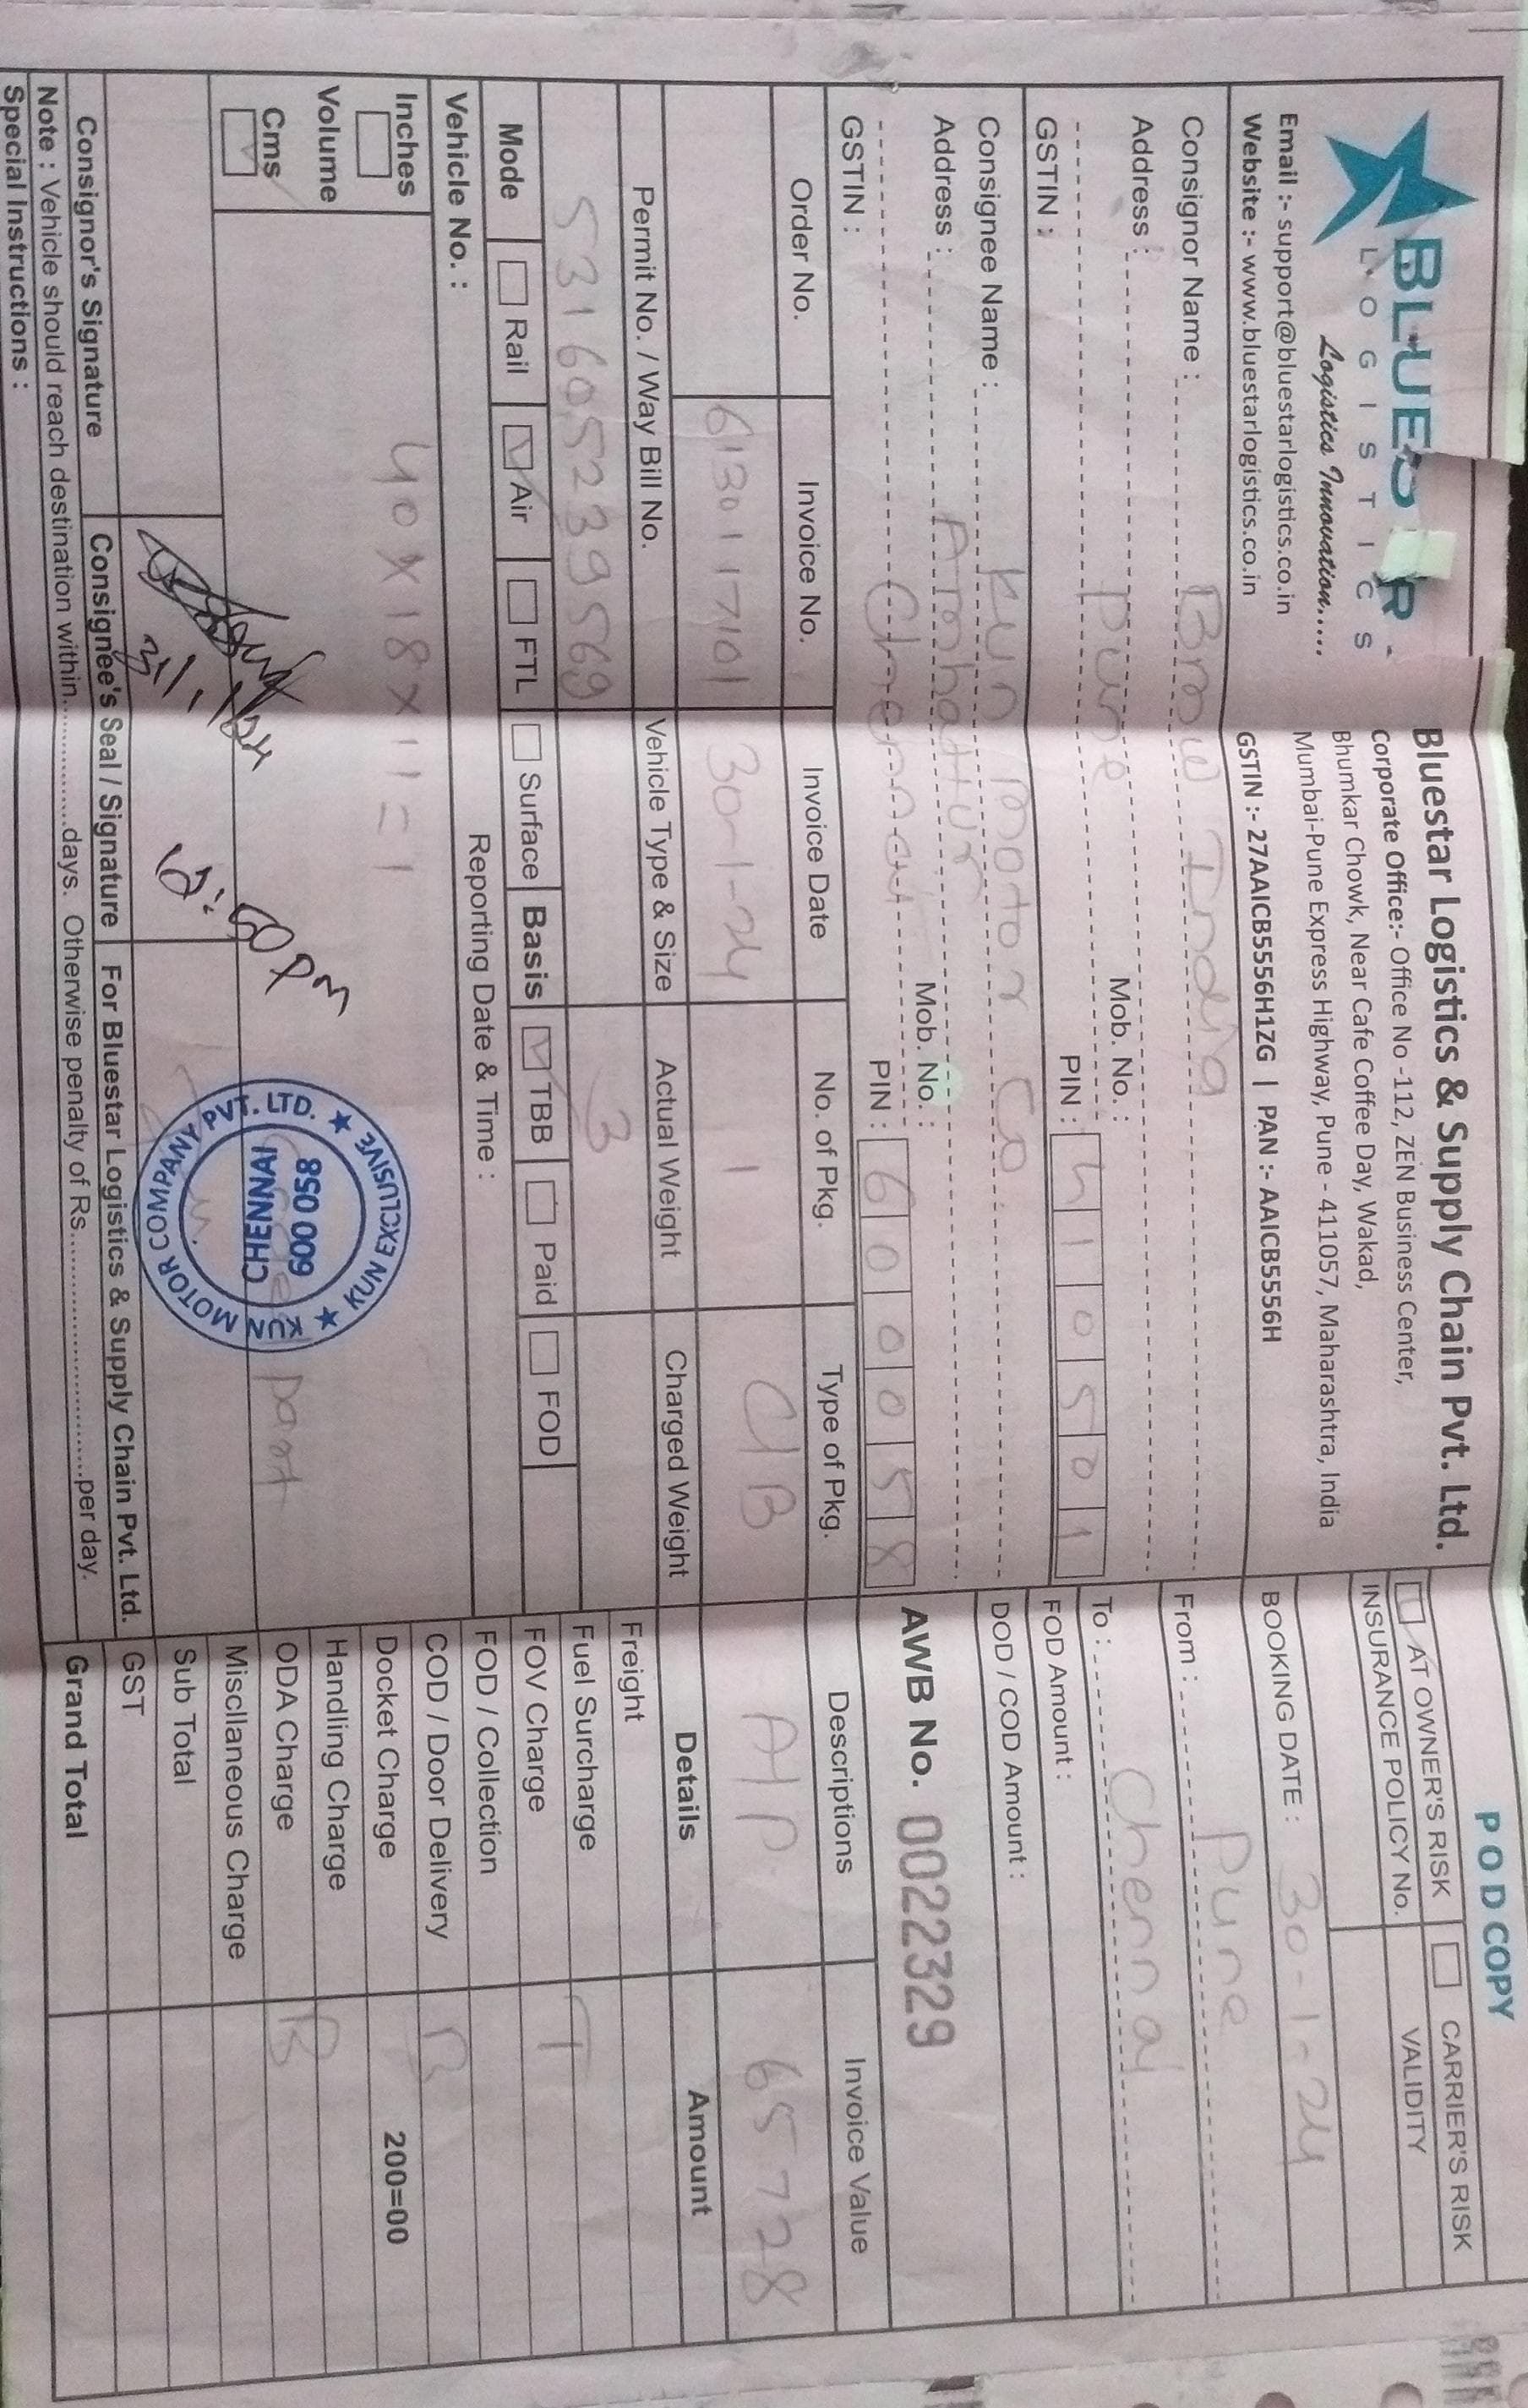 BLUEST R
LOGISTICS
Logistics Innovation.....
Email :- support@bluestarlogistics.co.in
Website :- www.bluestarlogistics.co.in
Bluestar Logistics & Supply Chain Pvt. Ltd.
Corporate Office:- Office No -112, ZEN Business Center,
Bhumkar Chowk, Near Cafe Coffee Day, Wakad,
Mumbai-Pune Express Highway, Pune - 411057, Maharashtra, India
GSTIN :- 27AAICB5556H1ZG | PAN :- AAICB5556H
POD COPY
AT OWNER'S RISK CARRIER'S RISK
INSURANCE POLICY No. VALIDITY
BOOKING DATE : 30-1-24
From : Pune
To : Chennai
FOD Amount :
DOD / COD Amount :
AWB No. 0022329
Consignor Name : Bmw India
Address :
Pune Mob. No. :
PIN : 410501
GSTIN :
Consignee Name : Kun Motor Co
Address : Ambattur
Chennai Mob. No. :
PIN : 600058
GSTIN :
Order No. Invoice No. Invoice Date No. of Pkg. Type of Pkg. Descriptions Invoice Value
6130117101 30-1-24 1 C/B A/P 65728
Permit No. / Way Bill No. Vehicle Type & Size Actual Weight Charged Weight
531605239569 3
Mode Rail Air FTL Surface Basis TBB Paid FOD
Vehicle No. : Reporting Date & Time :
Inches
Volume
Cms
40 X 18 X 11 = 1
31/1/24
KUN EXCLUSIVE ★ KUN MOTOR COMPANY PVT. LTD. ★
CHENNAI
600 058
part
Details Amount
Freight
Fuel Surcharge
T
FOV Charge
FOD / Collection
COD / Door Delivery B
Docket Charge 200=00
Handling Charge
ODA Charge B
Miscllaneous Charge
Sub Total
GST
Grand Total
Consignor's Signature Consignee's Seal / Signature For Bluestar Logistics & Supply Chain Pvt. Ltd.
Note : Vehicle should reach destination within................days. Otherwise penalty of Rs..............................per day.
Special Instructions :